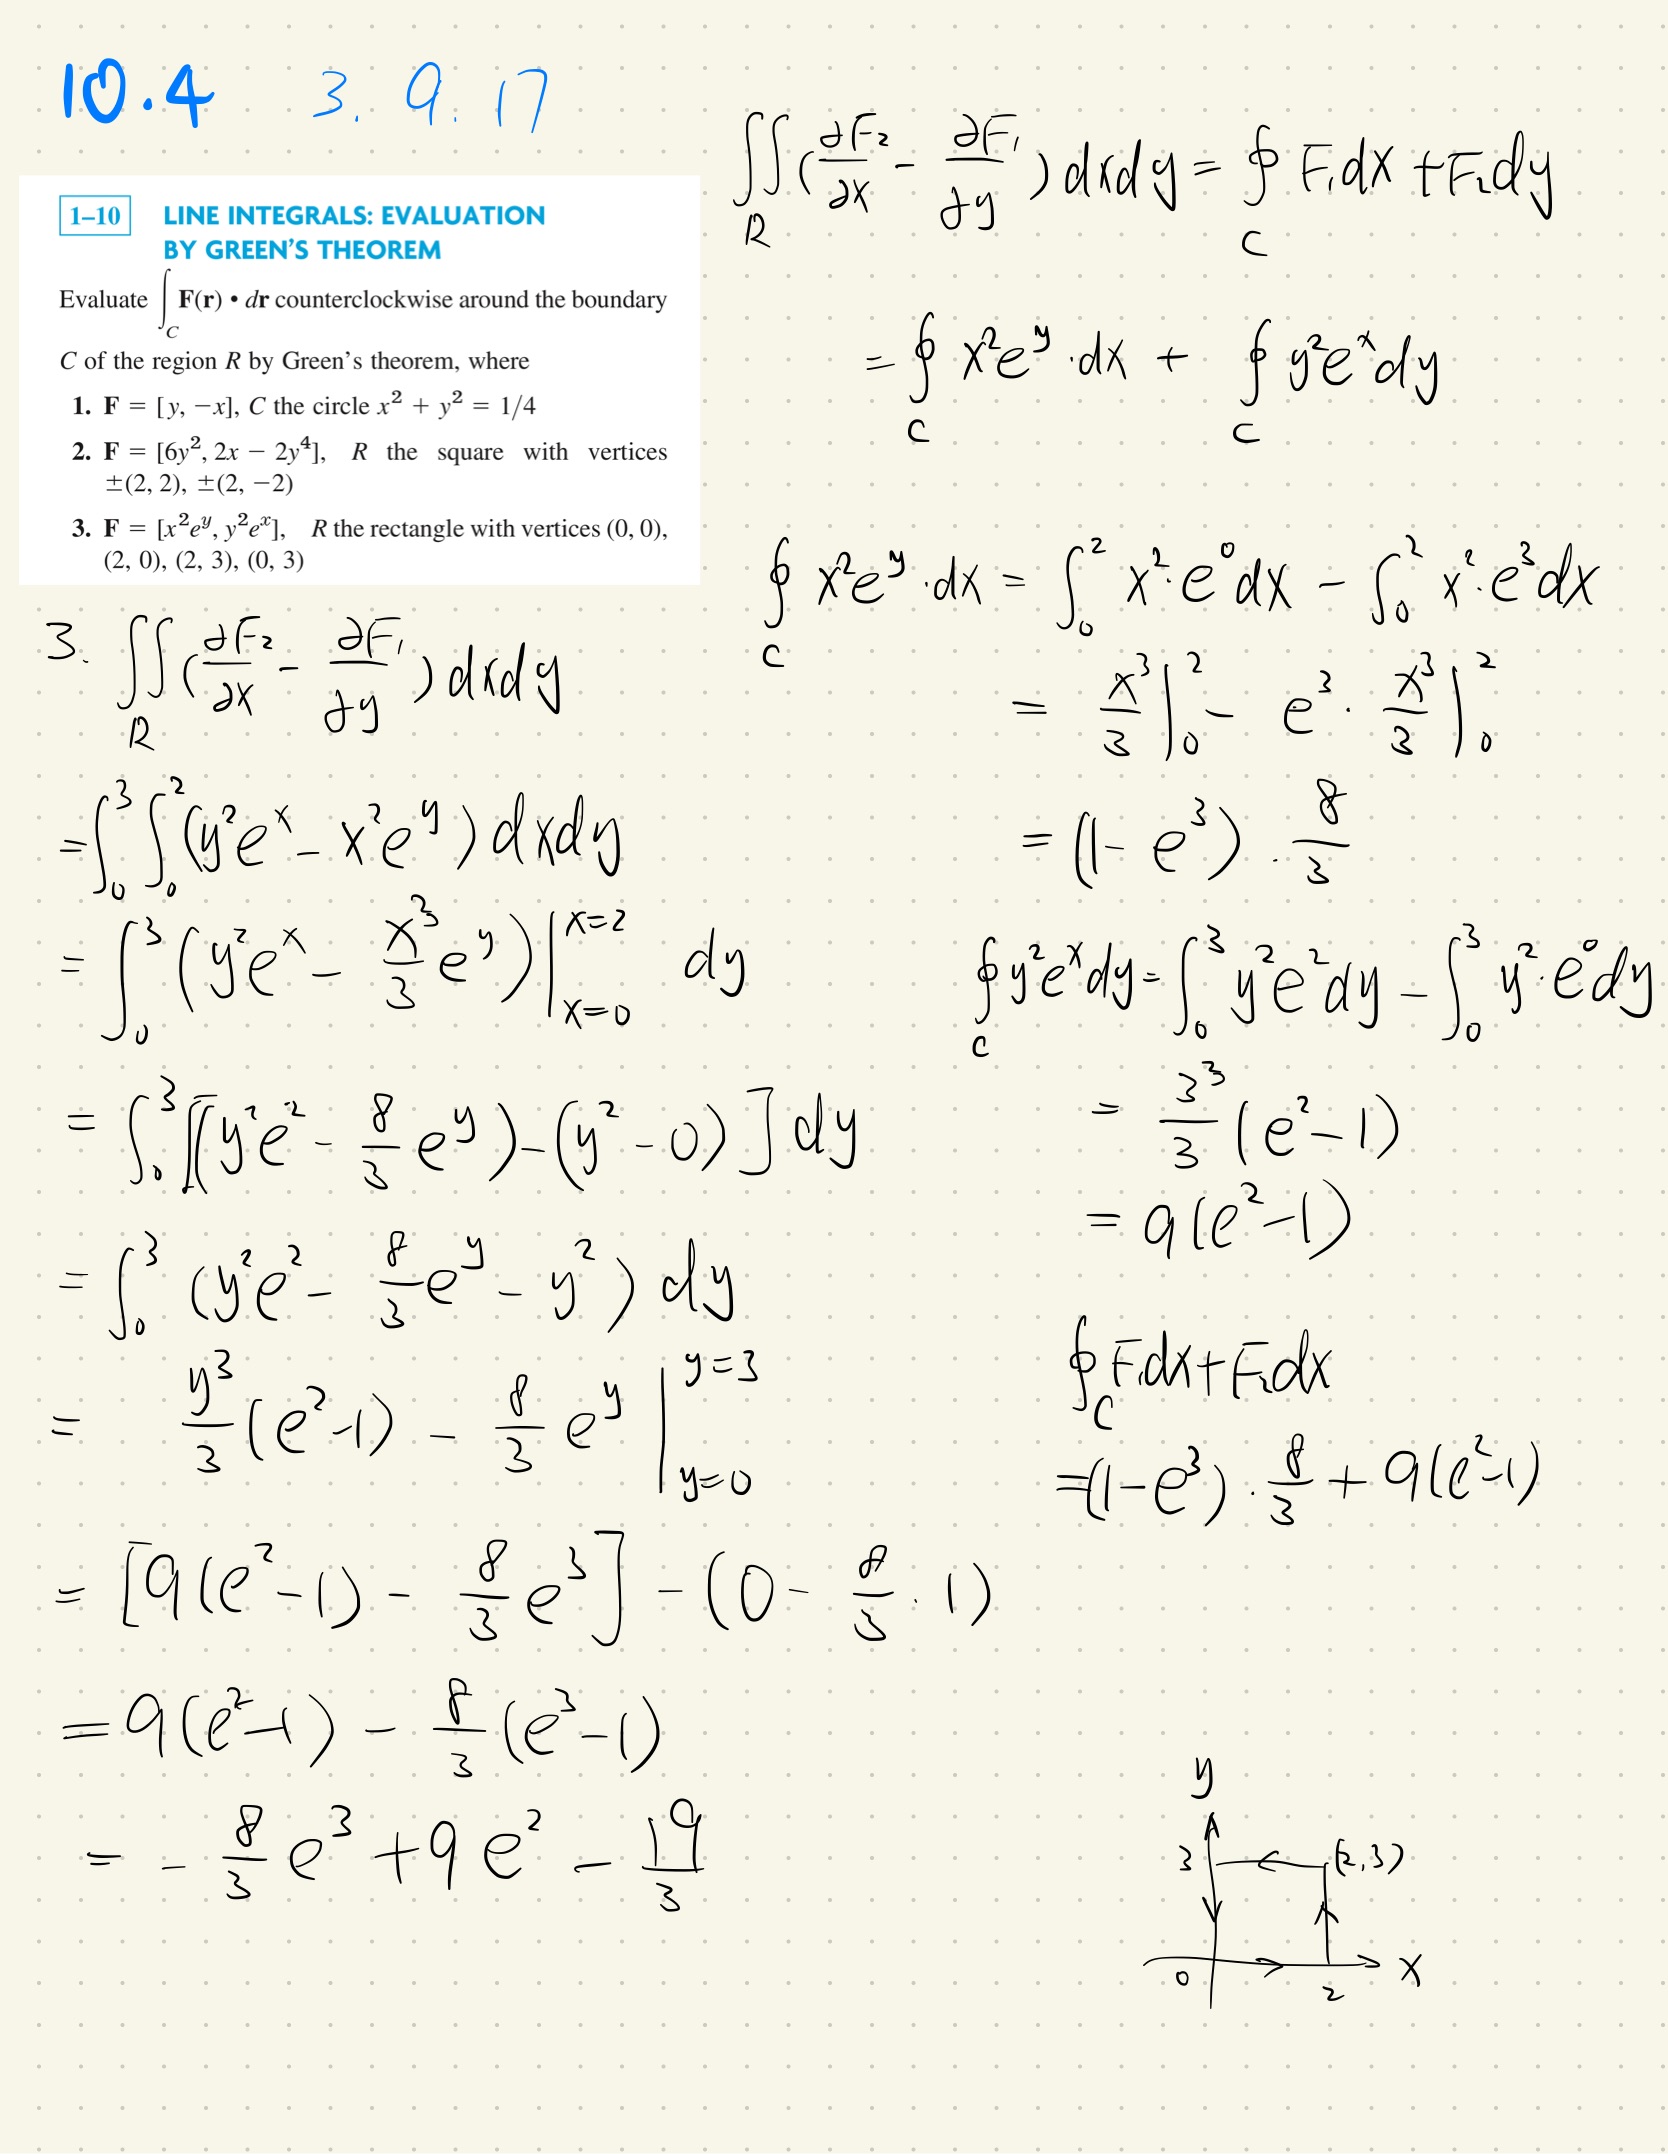 10.4 3. 9. 17
1–10 LINE INTEGRALS: EVALUATION
BY GREEN'S THEOREM
Evaluate ∫_C F(r) • dr counterclockwise around the boundary
C of the region R by Green's theorem, where
1. F = [y, −x], C the circle x² + y² = 1/4
2. F = [6y², 2x − 2y⁴], R the square with vertices
±(2, 2), ±(2, −2)
3. F = [x²e^y, y²e^x], R the rectangle with vertices (0, 0),
(2, 0), (2, 3), (0, 3)
3. ∬_R (∂F₂/∂x - ∂F₁/∂y) dxdy
= ∫₀³ ∫₀² (y²e^x - x²e^y) dxdy
= ∫₀³ (y²e^x - x³/3 e^y) |_{x=0}^{x=2} dy
= ∫₀³ [(y²e² - 8/3 e^y) - (y² - 0)] dy
= ∫₀³ (y²e² - 8/3 e^y - y²) dy
= y³/3 (e² - 1) - 8/3 e^y |_{y=0}^{y=3}
= [9(e² - 1) - 8/3 e³] - (0 - 8/3 · 1)
= 9(e² - 1) - 8/3 (e³ - 1)
= - 8/3 e³ + 9e² - 19/3
∬_R (∂F₂/∂x - ∂F₁/∂y) dxdy = ∮_C F₁dx + F₂dy
= ∮_C x²e^y · dx + ∮_C y²e^x dy
∮_C x²e^y · dx = ∫₀² x² · e⁰ dx - ∫₀² x² · e³ dx
= x³/3 |₀² - e³ · x³/3 |₀²
= (1 - e³) · 8/3
∮_C y²e^x dy = ∫₀³ y²e² dy - ∫₀³ y² · e⁰ dy
= 3³/3 (e² - 1)
= 9(e² - 1)
∮_C F₁dx + F₂dx
= (1 - e³) · 8/3 + 9(e² - 1)
y
3 (2,3)
0 2 x